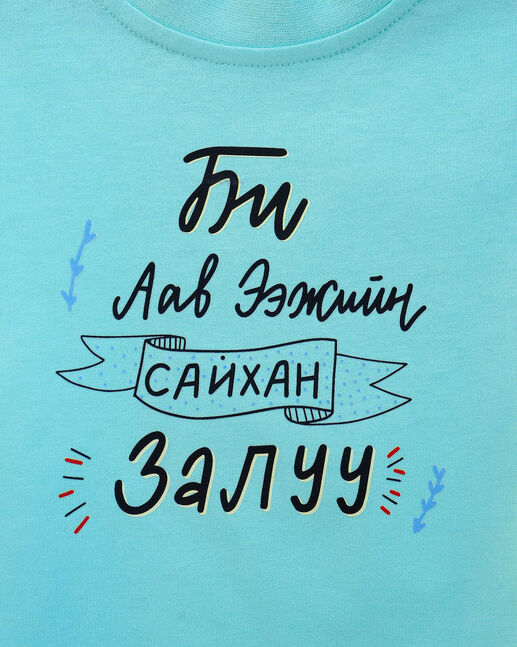 Би
Аав Ээжийн
САЙХАН
Залуу